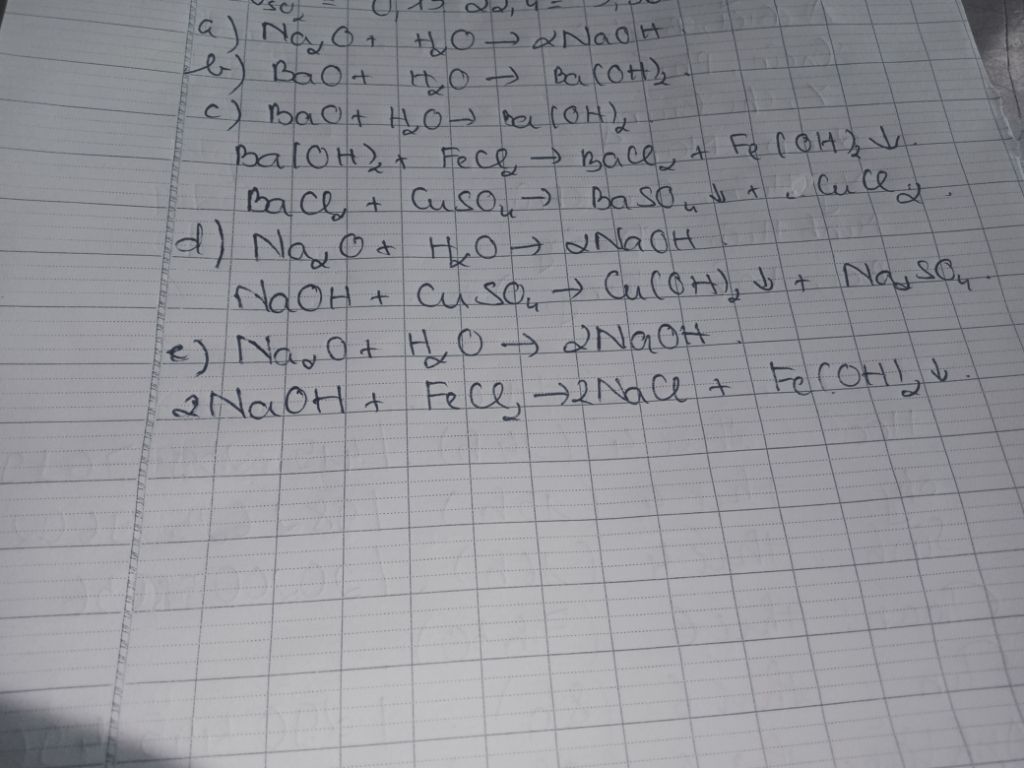 a) Na₂O + H₂O → 2NaOH
b) BaO + H₂O → Ba(OH)₂.
c) BaO + H₂O → Ba(OH)₂
Ba(OH)₂ + FeCl₂ → BaCl₂ + Fe(OH)₂ ↓.
BaCl₂ + CuSO₄ → BaSO₄ ↓ + CuCl₂.
d) Na₂O + H₂O → 2NaOH.
NaOH + CuSO₄ → Cu(OH)₂ ↓ + Na₂SO₄.
e) Na₂O + H₂O → 2NaOH.
2NaOH + FeCl₂ → 2NaCl + Fe(OH)₂ ↓.